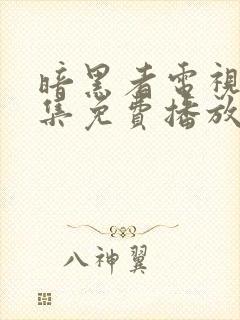 暗黑者電視
集免費播放
八神翼